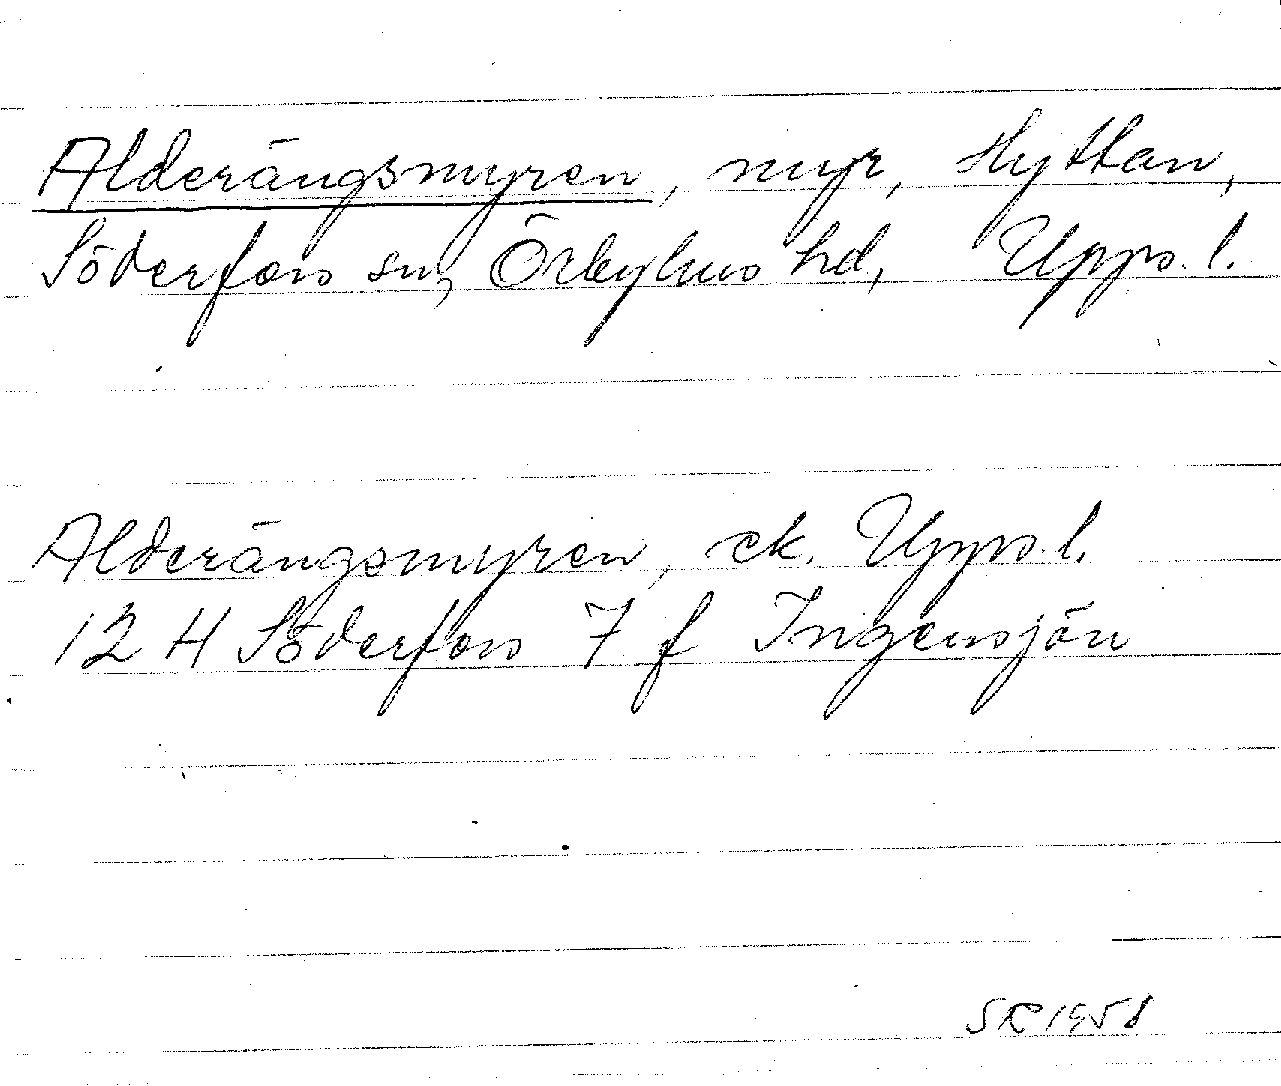 Alderängsmyren, myr, Hyttan,
Söderfors sn, Örbyhus hd, Upps. l.
Alderängsmyren, ek. Upps. l.
12 H Söderfors 7 f Ingensjön
SR 1958